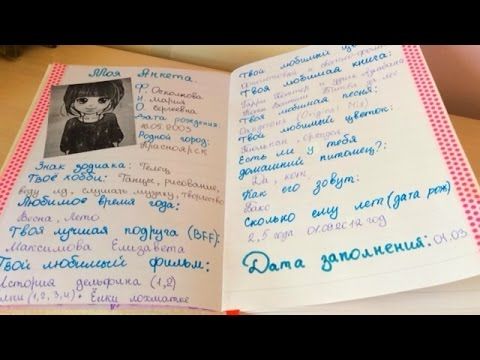 Моя Анкета.
Ф Осколкова
И Мария
О Сергеевна
Дата рождения:
10.05.2005
Родной город:
Красноярск
Знак зодиака: Телец
Твоё хобби: Танцы, рисование,
веду лд, слушать музыку, творчество
Любимое время года:
Весна, Лето.
Твоя лучшая подруга (BFF):
Максимова Елизавета
Твой любимый фильм:
История дельфина (1,2)
Ёлки (1,2,3,4) + Ёлки лохматые
Твой любимый цвет:
Твоя любимая книга:
Гарри Поттер и узник Азкабана
Твоя любимая песня:
Твой любимый цветок:
Тюльпан, орхидея
Есть ли у тебя
домашний питомец?:
Да, кот.
Как его зовут:
Сколько ему лет (дата рож)
2,5 года 01.09.2012 год
Дата заполнения: 04.03